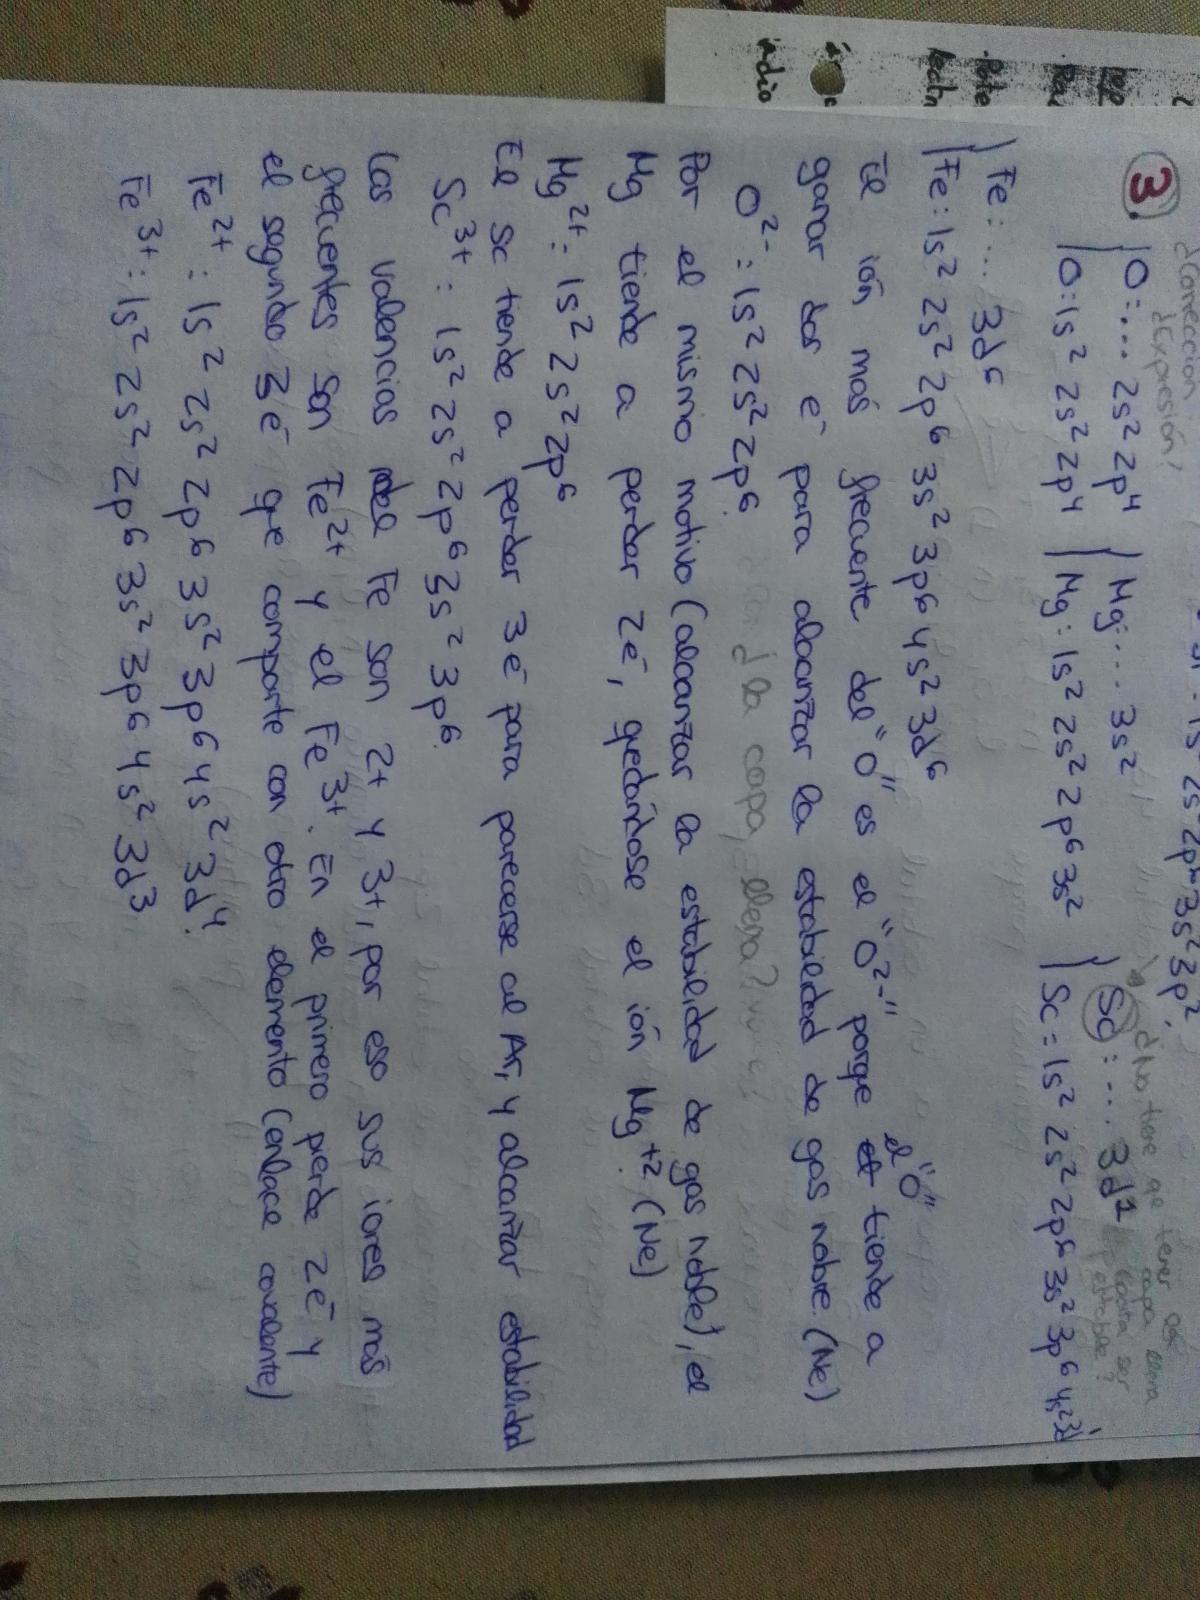 1s² 2s² 2p⁶ 3s² 3p².
¿Corrección
¿Expresión?
¿No tiene qe tener
capa llena
para ser
estable?
3. O: ... 2s² 2p⁴ Mg: ... 3s² Sc: ... 3d¹
O: 1s² 2s² 2p⁴ Mg: 1s² 2s² 2p⁶ 3s² Sc: 1s² 2s² 2p⁶ 3s² 3p⁶ 4s² 3d¹
Fe: ... 3d⁶
Fe: 1s² 2s² 2p⁶ 3s² 3p⁶ 4s² 3d⁶
el "O"
El ión más frecuente del "O" es el "O²⁻" porqe tiende a
ganar dos e⁻ para alcanzar la estabilidad de gas noble. (Ne)
O²⁻: 1s² 2s² 2p⁶. ¿la capa llena?
Por el mismo motivo (alcanzar la estabilidad de gas noble), el
Mg tiende a perder 2e⁻, qedándose el ión Mg⁺². (Ne)
Mg²⁺: 1s² 2s² 2p⁶
El Sc tiende a perder 3e⁻ para parecerse al Ar, y alcanzar estabilidad
Sc³⁺: 1s² 2s² 2p⁶ 3s² 3p⁶.
Las valencias del Fe son 2+ y 3+, por eso sus iones más
frecuentes son Fe²⁺ y el Fe³⁺. En el primero pierde 2e⁻ y
el segundo 3e⁻ qe comparte con otro elemento (enlace covalente)
Fe²⁺: 1s² 2s² 2p⁶ 3s² 3p⁶ 4s² 3d⁴.
Fe³⁺: 1s² 2s² 2p⁶ 3s² 3p⁶ 4s² 3d³